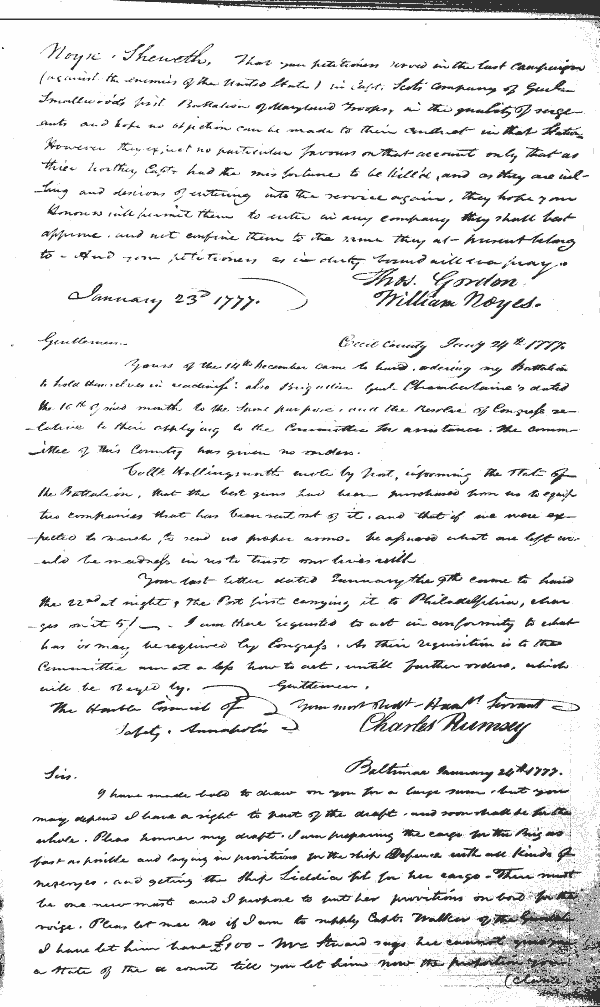 Noyse. Sheweth, That your petitioners served in the last campaign
(against the enemies of the United States) in Capt. Scots company of Genl
Smallwoods first Battalion of Maryland Troops, in the quality of serge-
ants and hope no objection can be made to their conduct in that station
However they expect no particular favours on that account only that as
their worthy Capt had the misfortune to be kill'd, and as they are wil-
ling and desirous of entering into the service again, they hope your
Honours will permit them to enter in any company they shall best
approve. and not confine them to the same they at present belong
to - And your petitioners as in duty bound will ever pray.
Thos. Gordon
January 23d 1777. William Noyes.
Gentlemen. Cecil County Jany 24th 1777.
Yours of the 14th December came to hand. ordering my Battalion
to hold themselves in readiness: also Brigadier Genl Chamberlaine's dated
the 16th of said month to the same purpose, and the Resolve of Congress re-
lative to their applying to the Committee for assistance. the comm-
ittee of this County has given no orders.
Collo Hollingsworth wrote by post, informing the state of
the Battalion, that the best guns had been purchased from us to equip
two companies that has been sent out of it. and that if we were ex-
pected to march, to send us proper arms. be assured what are left wo-
uld be madness in us to trust our lives with.
Your last letter dated January the 9th came to hand
the 22nd at night, the Post first carrying it to Philadelphia, char
ges on it 5/ - I am there requested to act in conformity to what
has or may be required by Congress. As their requisition is to the
Committee am at a loss how to act, untill further orders, which
will be obeyed by. Gentlemen,
The Honble Council of Your most Obdt Humbl Servant
Safety. Annapolis Charles Rumsey
Sirs. Baltimore January 24th 1777.
I have made bold to draw on you for a large sum. but you
may depend I have a right to part of the draft. and soon shall be for the
whole. Pleas honner my draft. I am preparing the cargo for the Brig as
fast as posible and laying in provitions for the ship Defence with all kinds of
nesesarys. and geting the Ship Liddia fit for her cargo. There must
be one new mast and I propose to put her provitions on bord for the
voige. Pleas let mee no if I am to supply Capt. Walker of the
I have let him have £100 - Mr Steward says hee cannot
a state of the account till you let him now the proportion your
(claime)